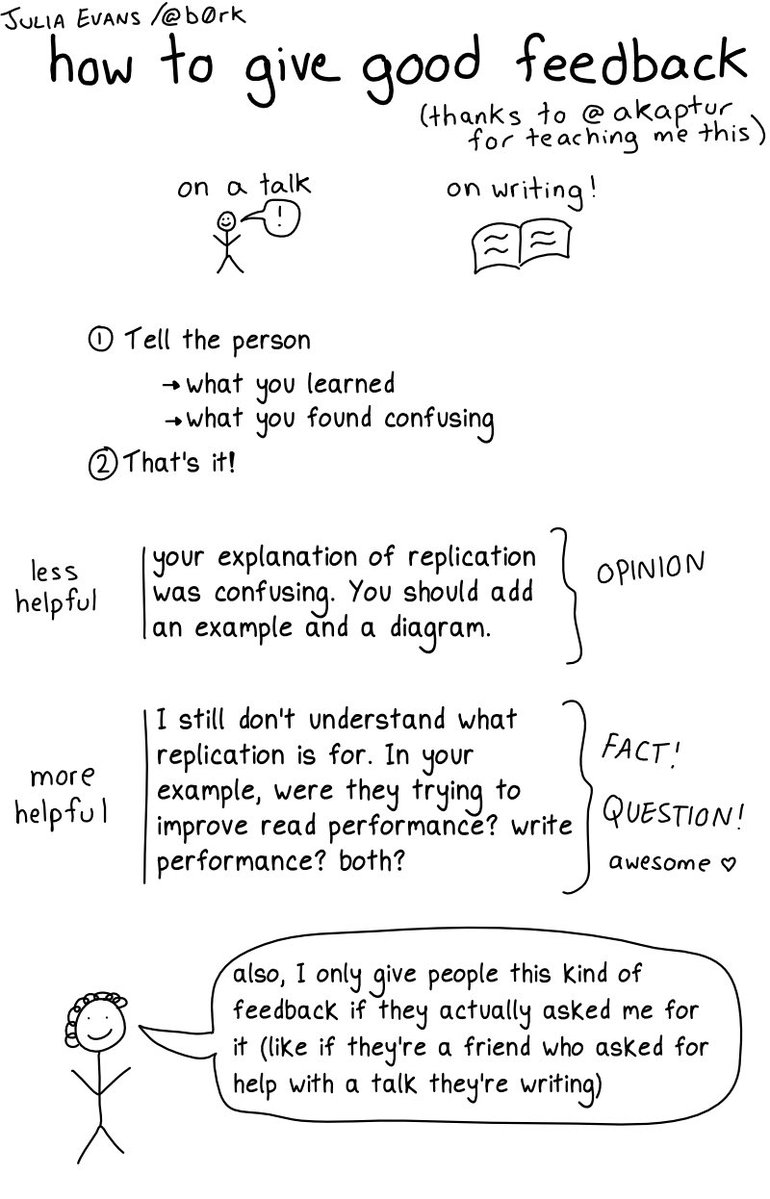 JULIA EVANS /@b0rk
how to give good feedback
(thanks to @akaptur
for teaching me this)
on a talk
!
on writing!
① Tell the person
→ what you learned
→ what you found confusing
② That's it!
less
helpful
your explanation of replication
was confusing. You should add
an example and a diagram.
OPINION
more
helpful
I still don't understand what
replication is for. In your
example, were they trying to
improve read performance? write
performance? both?
FACT!
QUESTION!
awesome ♡
also, I only give people this kind of
feedback if they actually asked me for
it (like if they're a friend who asked for
help with a talk they're writing)